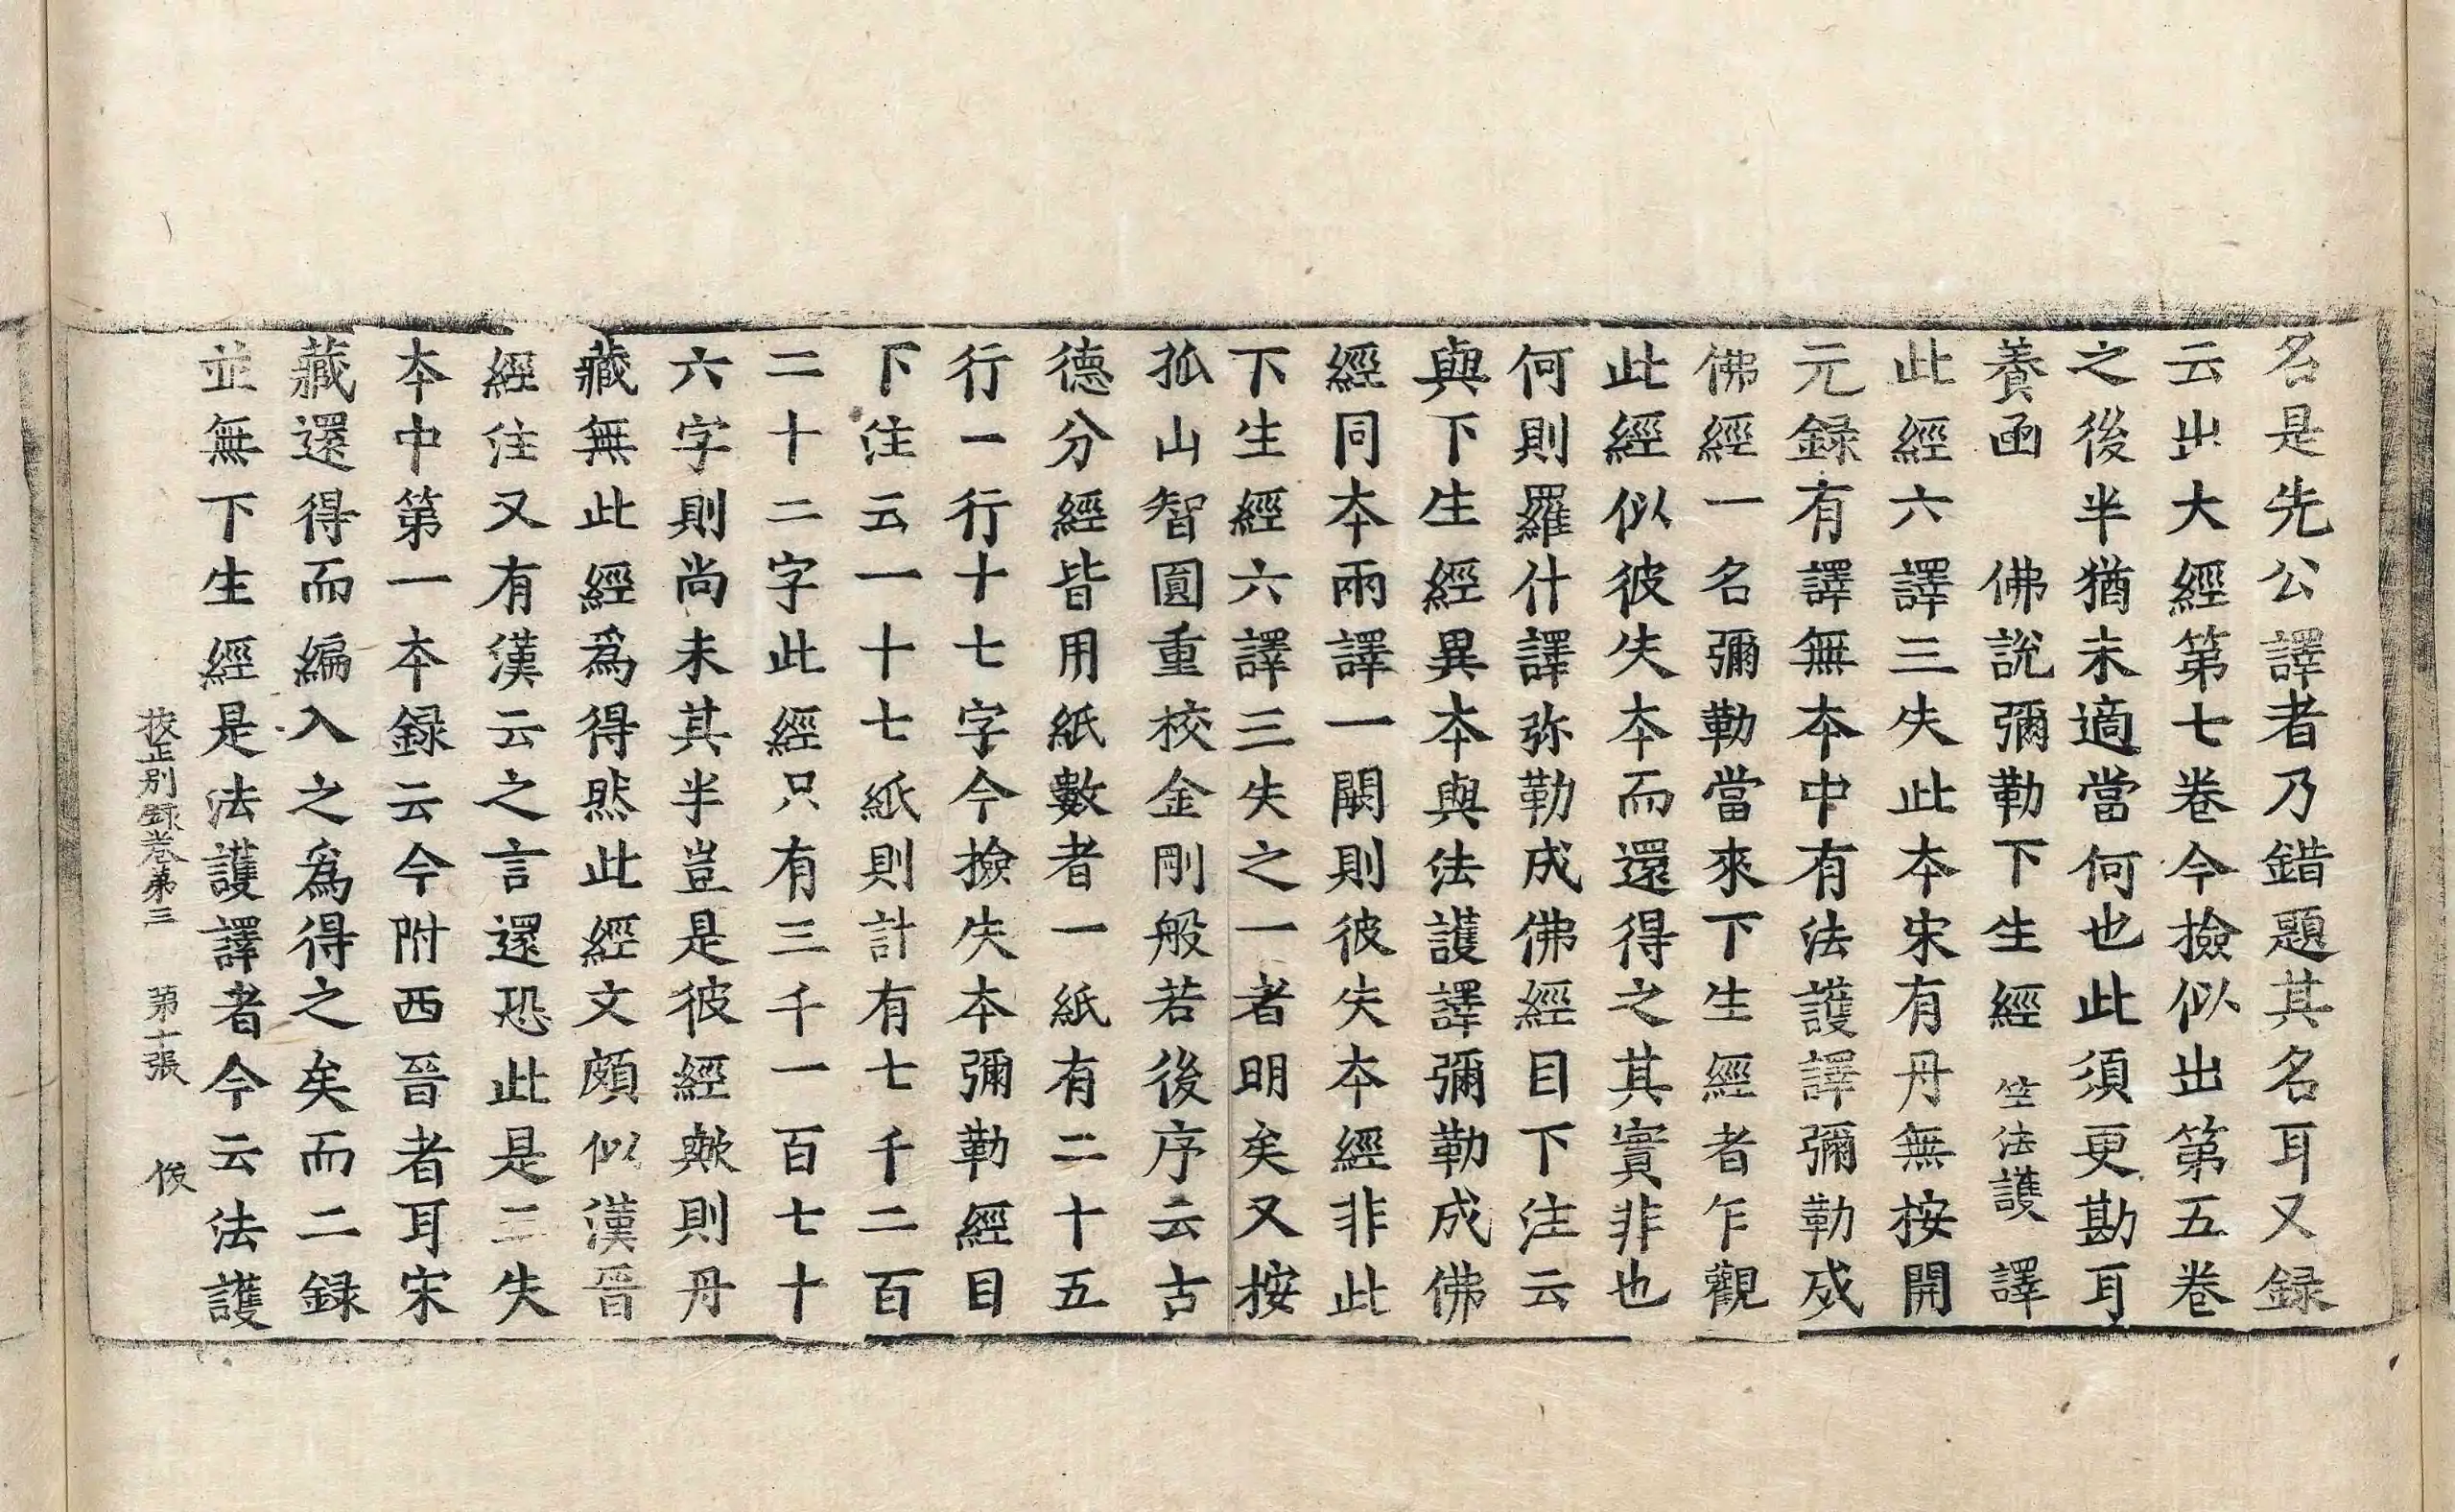 名是先公譯者乃錯題其名耳又録
云出大經第七卷今撿似出第五卷
之後半猶未適當何也此須更勘耳
養函　佛說彌勒下生經　竺法護譯
此經六譯三失此本宋有丹無按開
元録有譯無本中有法護譯彌勒成
佛經一名彌勒當來下生經者乍觀
此經似彼失本而還得之其實非也
何則羅什譯弥勒成佛經目下注云
與下生經異本與法護譯彌勒成佛
經同本兩譯一闕則彼失本經非此
下生經六譯三失之一者明矣又按
孤山智圓重校金剛般若後序云古
德分經皆用紙數者一紙有二十五
行一行十七字今撿失本彌勒經目
下注云一十七紙則計有七千二百
二十二字此經只有三千一百七十
六字則尚未其半豈是彼經歟則丹
藏無此經爲得然此經文頗似漢晉
經注又有漢云之言還恐此是三失
本中第一本録云今附西晉者耳宋
藏還得而編入之爲得之矣而二録
並無下生經是法護譯者今云法護
挍正別録卷第三　第十張　俊